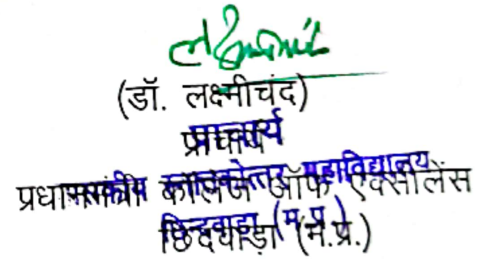 (डॉ. लक्ष्मीचंद)
प्राचार्य
प्राचार्य
शासकीय स्नातकोत्तर महाविद्यालय
प्रधानमंत्री कॉलेज ऑफ एक्सीलेंस
छिन्दवाड़ा (म.प्र.)
छिंदवाड़ा (म.प्र.)